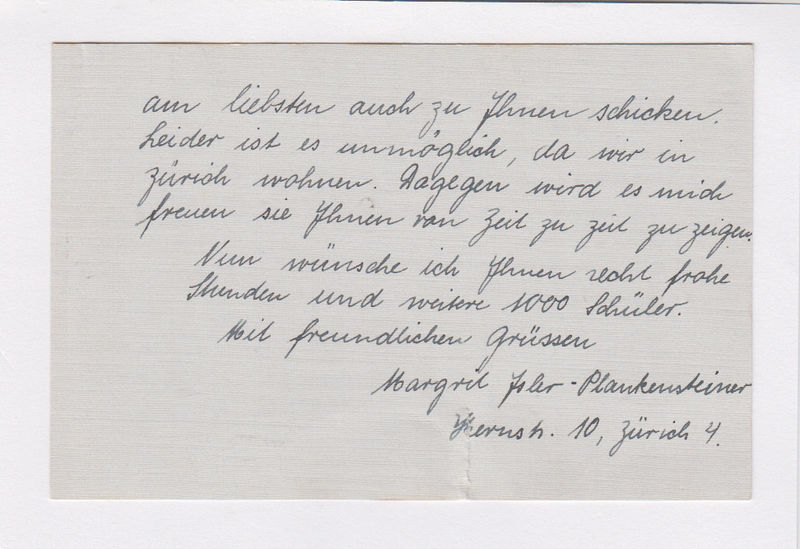 am liebsten auch zu Ihnen schicken.
Leider ist es unmöglich, da wir in
Zürich wohnen. Dagegen wird es mich
freuen sie Ihnen von Zeit zu Zeit zu zeigen.
Nun wünsche ich Ihnen recht frohe
Stunden und weitere 1000 Schüler.
Mit freundlichen Grüssen
Margrit Isler-Plankensteiner
Kernstr. 10, Zürich 4.